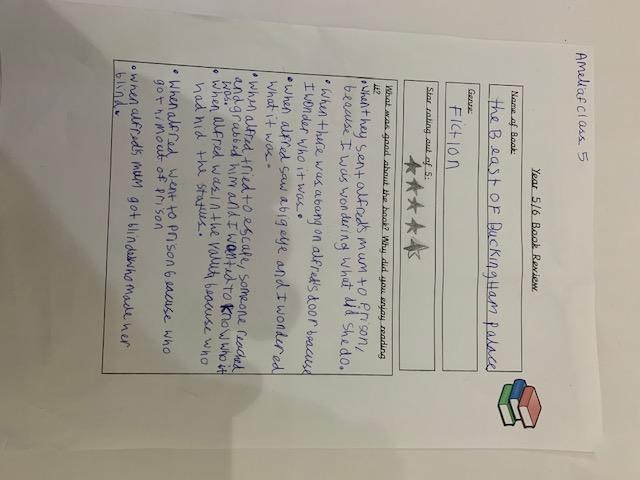 Ameliaf class 5
Year 5/6 Book Review
Name of Book:
the Beast of Buckingham Palace
Genre:
Fiction
Star rating out of 5:
What was good about the book? Why did you enjoy reading
it?
• When they sent alfred's mum to prison,
beacuse I was wondering what did she do.
• When there was a bang on alfred's door beacuse
I wonder who it was.
• When alfred saw a big eye and I wondered
what it was.
• When alfred tried to escape, someone reached
and grabbed him and I wanted to know who it
was.
• When alfred was in the vault beacuse who
had hid the statues.
• When alfred went to prison beacuse who
got him out of prison
• When alfred's mum got blinded who made her
blind.